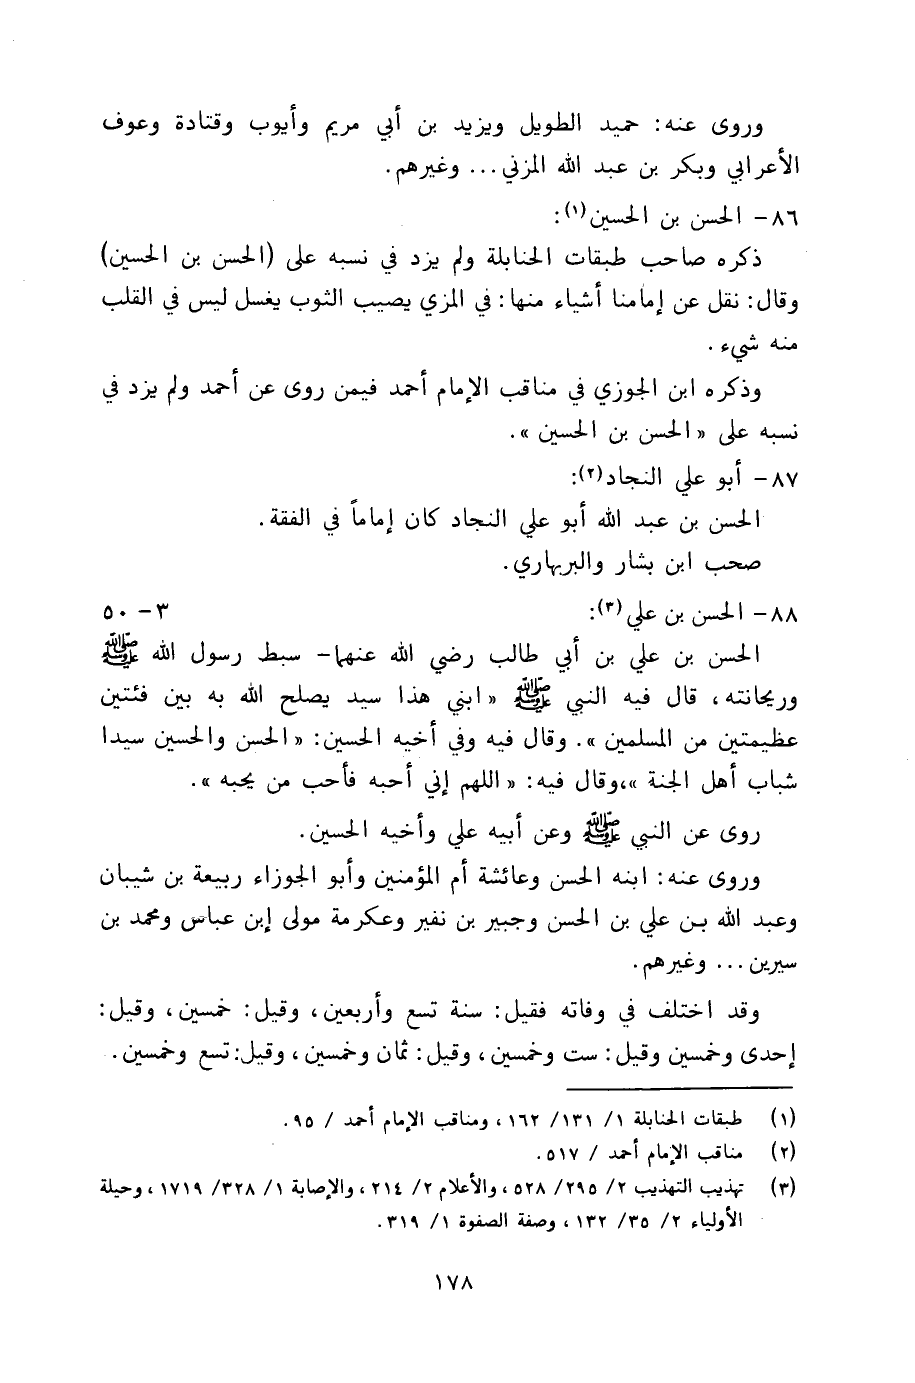 وروى عنه: حميد الطويل ويزيد بن أبي مريم وأيوب وقتادة وعوف
الأعرابي وبكر بن عبد الله المزني... وغيرهم.
٨٦- الحسن بن الحسين(١):
ذكره صاحب طبقات الحنابلة ولم يزد في نسبه على (الحسن بن الحسين)
وقال: نقل عن إمامنا أشياء منها: في المزي يصيب الثوب يغسل ليس في القلب
منه شيء.
وذكره ابن الجوزي في مناقب الإمام أحمد فيمن روى عن أحمد ولم يزد في
نسبه على «الحسن بن الحسين».
٨٧- أبو علي النجاد(٢):
الحسن بن عبد الله أبو علي النجاد كان إماماً في الفقة.
صحب ابن بشار والبربهاري.
٨٨- الحسن بن علي(٣): ٣- ٥٠
الحسن بن علي بن أبي طالب رضي الله عنهما- سبط رسول الله ﷺ
وريحانته، قال فيه النبي ﷺ «ابني هذا سيد يصلح الله به بين فئتين
عظيمتين من المسلمين». وقال فيه وفي أخيه الحسين: «الحسن والحسين سيدا
شباب أهل الجنة»،وقال فيه: «اللهم إني أحبه فأحب من يحبه».
روى عن النبي ﷺ وعن أبيه علي وأخيه الحسين.
وروى عنه: ابنه الحسن وعائشة أم المؤمنين وأبو الجوزاء ربيعة بن شيبان
وعبد الله بن علي بن الحسن وجبير بن نفير وعكرمة مولى إبن عباس ومحمد بن
سيرين... وغيرهم.
وقد اختلف في وفاته فقيل: سنة تسع وأربعين، وقيل: خمسين، وقيل:
إحدى وخمسين وقيل: ست وخمسين، وقيل: ثمان وخمسين، وقيل: تسع وخمسين.
(١) طبقات الحنابلة ١/ ١٣١/ ١٦٢، ومناقب الإمام أحمد / ٩٥.
(٢) مناقب الإمام أحمد / ٥١٧.
(٣) تهذيب التهذيب ٢/ ٢٩٥/ ٥٢٨، والأعلام ٢/ ٢١٤، والإصابة ١/ ٣٢٨/ ١٧١٩، وحيلة
الأولياء ٢/ ٣٥/ ١٣٢، وصفة الصفوة ١/ ٣١٩.
١٧٨